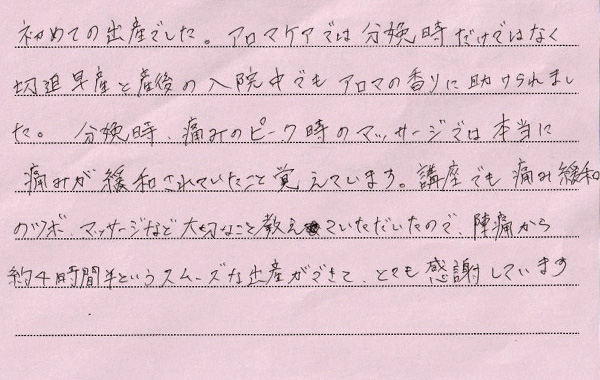 初めての出産でした。アロマケアでは分娩時だけではなく
切迫早産と産後の入院中でもアロマの香りに助けられまし
た。分娩時、痛みのピーク時のマッサージでは本当に
痛みが緩和されていたこと覚えています。講座でも痛み緩和
のツボ、マッサージなど大切なこと教えていただいたので、陣痛から
約4時間半というスムーズな出産ができて、とても感謝しています